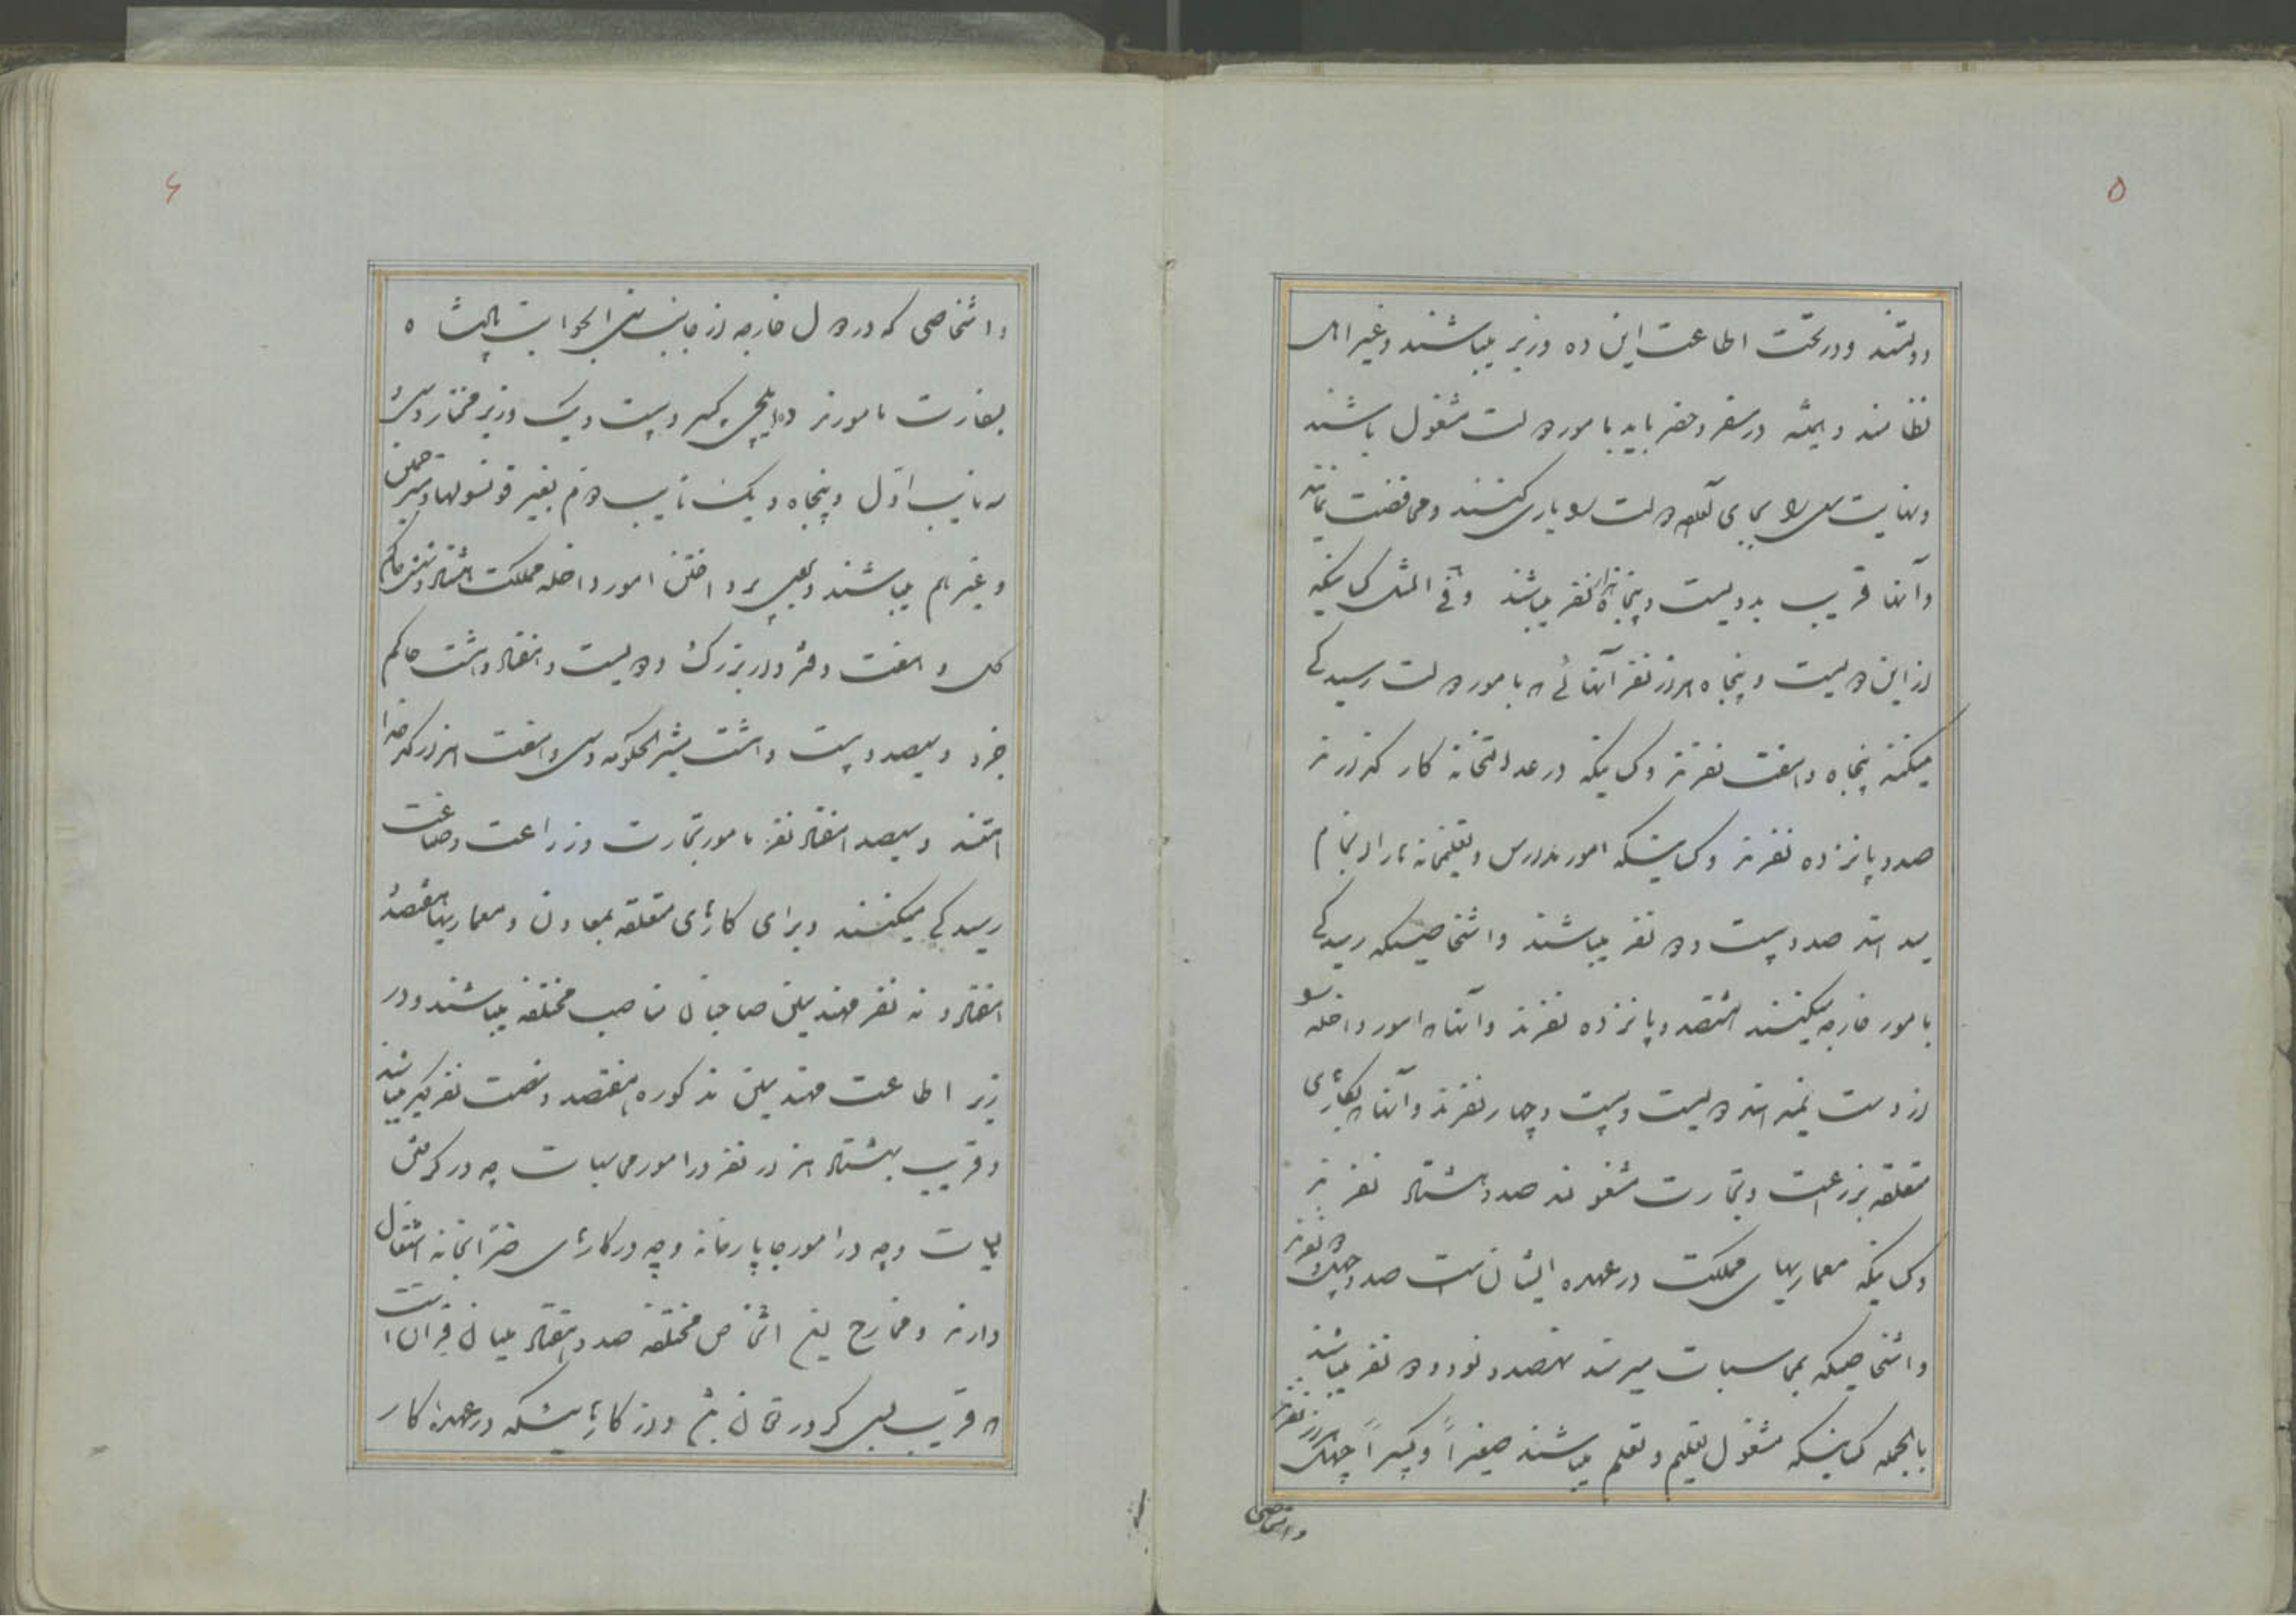 ۵
دولتند و در تحت اطاعت این ده وزیر میباشند و غیر اهل
نظامند و همیشه در سفر و حضر باید بامور دولت مشغول باشند
ونهایت سعی را بجای آورده دولت را یاری کنند و محافظت نمایند
وآنها قریب بدویست و پنجاه هزار نفر میباشند و فی المثل کسانیکه
از این دویست و پنجاه هزار نفر آنهائی که بامور دولت رسیدگی
میکنند پنجاه و هفت نفرند و کسانیکه در عدالتخانه کار گذارند
صد و پانزده نفرند و کسانیکه امور مدارس و تعلیمخانه را انجام
میدهند صد و بیست و دو نفر میباشند و اشخاصیکه رسیدگی
بامور خارجه میکنند هشتصد و پانزده نفرند و آنها که امور داخله را
از دست نمیدهند دویست و بیست و چهار نفرند و آنها که بکارهای
متعلقه بزراعت و تجارت مشغولند صد و هشتاد نفرند
وکسانیکه معماریهای مملکت در عهده ایشان است صد و چهل و دو نفرند
واشخاصیکه بمحاسبات میرسند نهصد و نود و دو نفر میباشند
بالجمله کسانیکه مشغول تعلیم و تعلم میباشند صغیراً و کبیراً چهل هزار نفرند
واشخاصی
۶
واشخاصی که در دول خارجه از جانب
بسفارت مامورند ده ایلچی کبیر و بیست و یک وزیر مختار و سی و
سه نایب اول و پنجاه و یک نایب دوم بغیر قونسولها و مترجمین
وغیرهم میباشند و بجهت پرداختن امور داخله مملکت هشتاد و شش حاکم
کل و هفت دفتردار بزرگ و دویست و هفتاد و هشت حاکم
جزو و سیصد و بیست و هشت مشیر الحکومه و سی و هفت هزار کدخدا
هستند و سیصد هفتاد نفر مامور تجارت و زراعت و صناعت
رسیدگی میکنند و برای کارهای متعلقه بمعادن و معماریها هفتصد و
هفتاد و نه نفر مهندسین صاحبان مناصب مختلفه میباشند و در
زیر اطاعت مهندسین مذکوره هفتصد و شصت نفر دیگر میباشند
وقریب بهشتاد هزار نفر در امور محاسبات چه در گرفتن
مالیات و چه در امور چاپارخانه و چه در کارهای خزانخانه اشتغال
دارند و مخارج این اشخاص مختلفه صد و هفتاد میلیان قرانست
که قریب سی کرور تومان میشود و از کارهائیکه در عهده کار